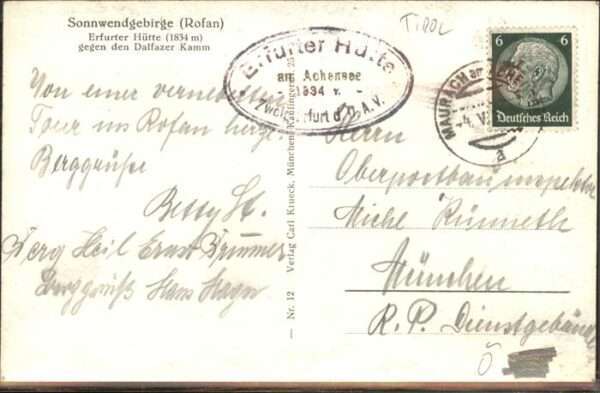 Sonnwendgebirge (Rofan)
Erfurter Hütte (1834 m)
gegen den Dalfazer Kamm
TIROL
Erfurter Hütte
am Achensee
1834
Zweig Erfurt d. D.A.V.
MAURACH am
a
6 6
Deutsches Reich
Von einer
Tour ins Rofan
Berggrüße
Betty St.
Berg Heil Ernst
Berggruß Hans
Nr. 12 Verlag Carl Krueck, München, Kaulingerstr. 25
Herrn
Oberpostbauinspektor
Michl
München
R. P. Dienstgebäude
Ö